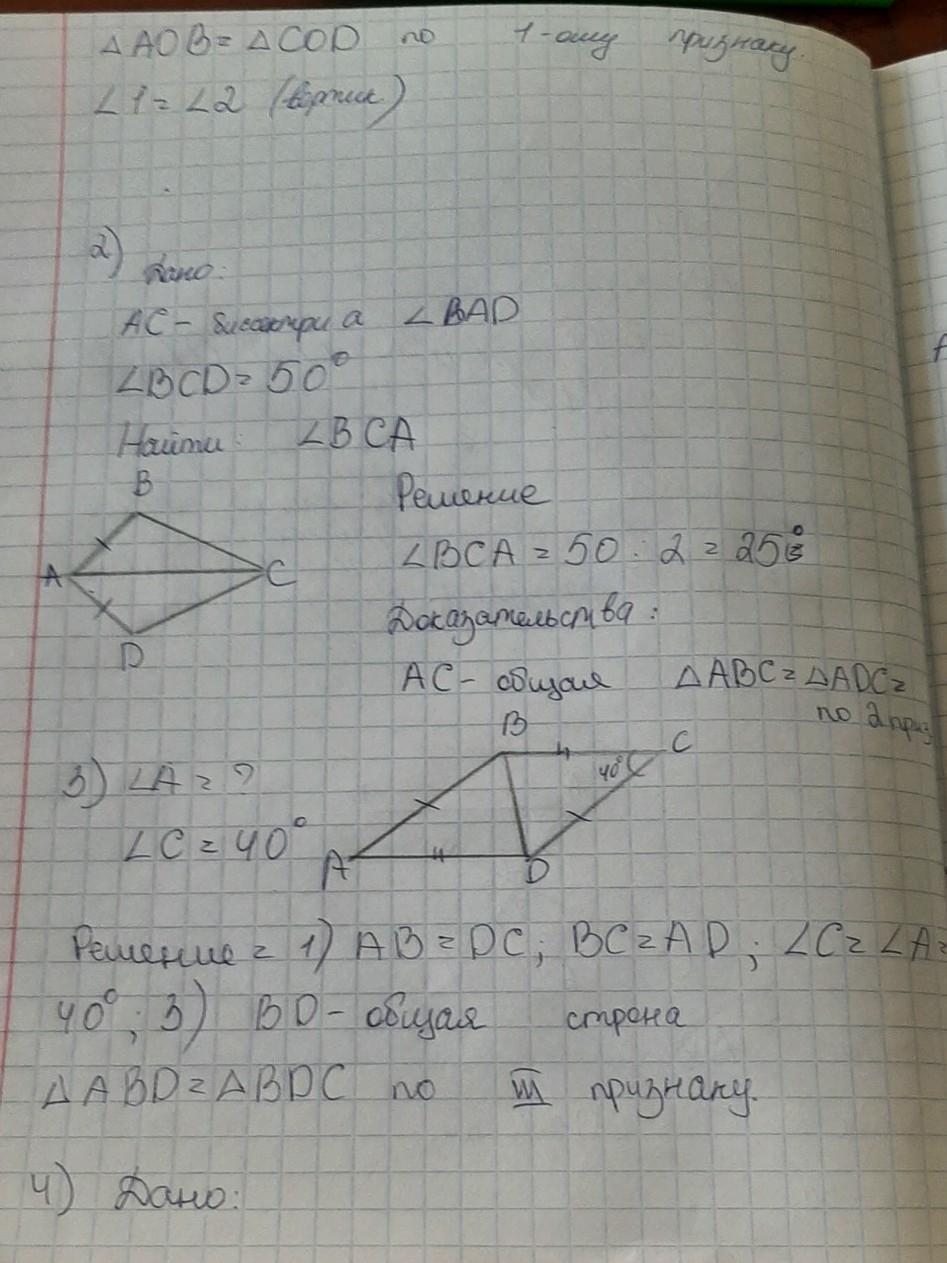 △AOB = △COD по 1-ому признаку.
∠1 = ∠2 (вертик)
2) Дано:
AC - биссектриса ∠BAD
∠BCD = 50°
Найти: ∠BCA
B
A
C
D
Решение
∠BCA = 50 : 2 = 25°
Доказательства:
AC - общая △ABC = △ADC =
по 2 приз
3) ∠A = ?
∠C = 40°
B
C
40°
A
D
Решение = 1) AB = DC; BC = AD; ∠C = ∠A =
40°; 3) BD - общая строна
△ABD = △BDC по III признаку.
4) Дано: